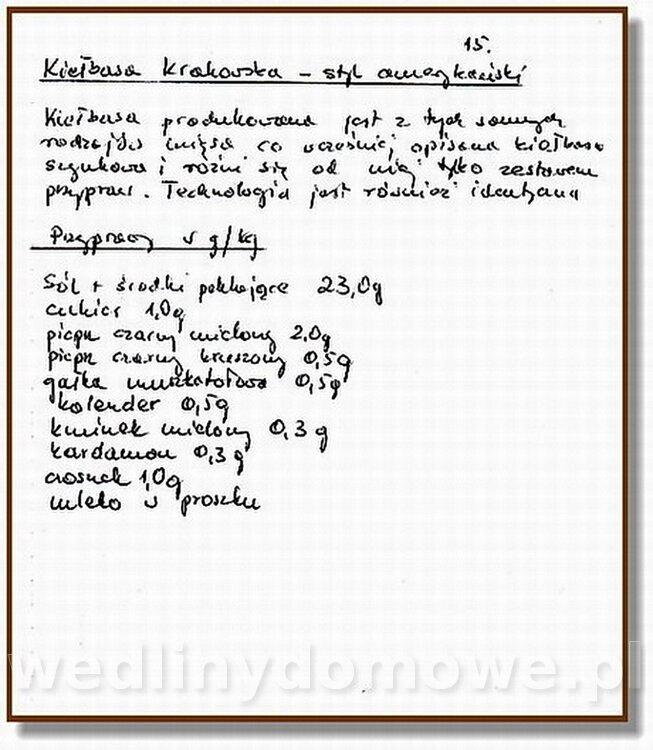 15.
Kiełbasa Krakowska – styl amerykański
Kiełbasa produkowana jest z tych samych
rodzajów mięsa co wcześniej opisana kiełbasa
szynkowa i różni się od niej tylko zestawem
przypraw. Technologia jest również identyczna
Przyprawy w g/kg
Sól + środki peklujące 23,0g
cukier 1,0g
pieprz czarny mielony 2,0g
pieprz czarny kruszony 0,5g
gałka muszkatołowa 0,5g
kolender 0,5g
kminek mielony 0,3 g
kardamon 0,3 g
czosnek 1,0g
mleko w proszku
wedlinydomowe.pl